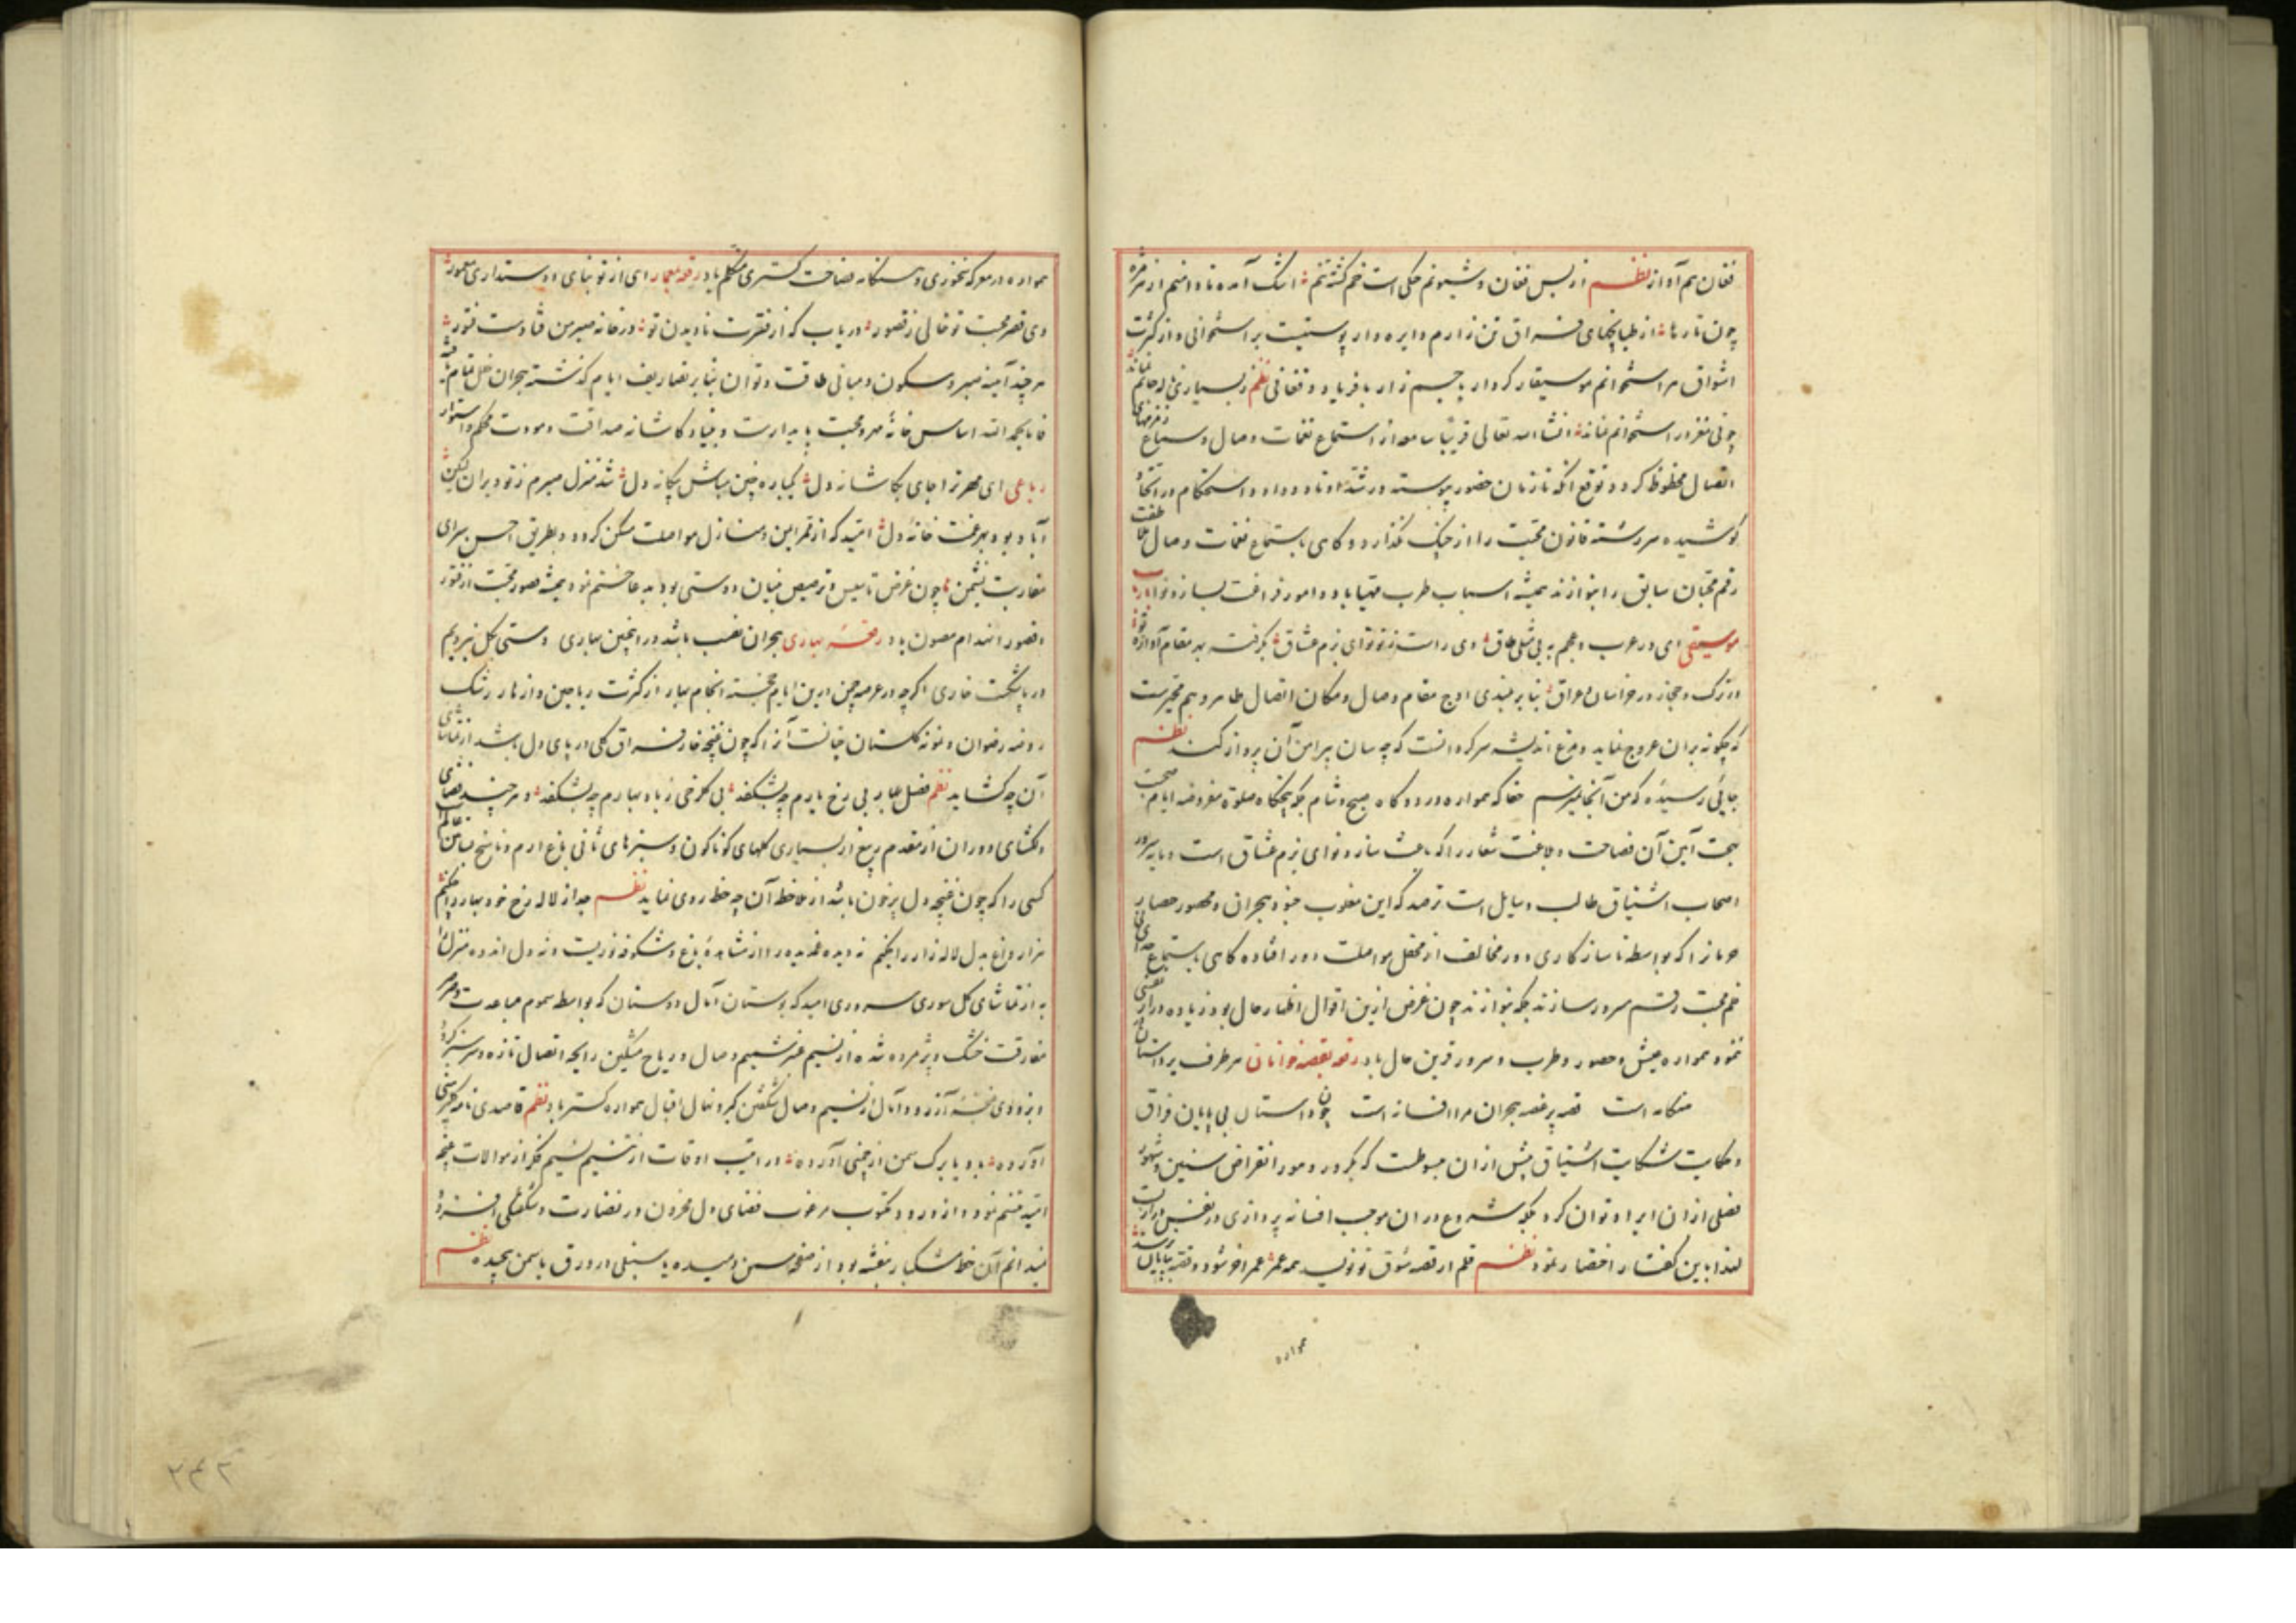 فغان هم آواز نظم از بس فغان و شیونم چنگی است خم گشته تنم اشک آمده تا دامنم از هر مژه
چون تارها از طپانچهای فراق تن زارم دایره وار پوستیست بر استخوانی و از کثرت
اشواق هر استخوانم موسیقار کردار با جسم زار با فریاد و فغانی نظم ز بسیاری
چو نی مغز در استخوانم نماند انشاء الله تعالی قریبا سامعه از استماع نغمات وصال و سماع زمزمهای
اتصال محظوظ گردد توقع آنکه تا زمان حضور پیوسته در شد اوتار وداد و استحکام در اتحاد
کوشیده سررشته قانون محبت را از چنگ نگذارد و گاهی باستماع نغمات وصال
رقم محبان سابق را بنوازند همیشه اسباب طرب مهیا باد و امور فراغت بساز و نوا باد
موسیقی ای در عرب و عجم به بی مثلی طاق وی راست ز تو نوای بزم عشاق بگرفت به هر مقام آوازه تو
در ترک و حجاز و در خراسان و عراق بنابر بلندی اوج مقام وصال و مکان اتصال طایر وهم متحیرست
که چگونه بران عروج نماید و مرغ اندیشه سرگردانست که چه سان پیرامن آن پرواز کند نظم
جایی رسیده که من آنجا نمیرسم حقا که همواره در دوگاه صبح و شام بلکه پنجگاه صلوة مفروضه ایام صحبت
بهجت آیین آن فصاحت و بلاغت شعار را که باعث ساز و نوای بزم عشاق است و مایه سرور
اصحاب اشتیاق طالب و مایل است ترصد که این مغلوب جنود هجران و محصور حصار
حرمانرا که بواسطه ناسازگاری دور مخالف از محفل مواصلت دور افتاده گاهی باستماع صدای
خم محبت رقم مسرور سازند بلکه بنوازند چون غرض ازین اقوال اظهار حال بود زیاده دراز نفسی
ننمود همواره عیش و حضور و طرب و سرور قرین حال باد رقعه بقصه خوانان هر طرف بر داستان
هنگامه است قصه پر غصه هجران مرا افسانه است چون داستان بی پایان فراق
و حکایت شکایت اشتیاق بیش ازان مبسوطست که بکرور و مرور انقراض سنین و شهور
فصلی ازان ایراد توان کرد بلکه شروع دران موجب افسانه پردازی و نفس درازیست
لهذا باین گفتار اختصار نمود نظم قلم ار قصه شوق تو نویسد همه عمر عمر آخر شود و قصه بپایان نرسد
همواره
همواره در معرکه سخنوری و هنگامه فصاحت گستری متکلم باد رقعه معمار ای از تو بنای دوستداری معمور
وی قصر محبت تو خالی ز قصور دریاب که از فترت نادیدن تو در خانه صبر من فتادست فتور
هرچند آینه صبر و سکون و مبانی طاقت و توان بنابر تصاریف ایام گذشته هجران خلل تمام یافته
فاما بحمد الله اساس خانه مهر و محبت پایدارست و بنیاد کاشانه صداقت و مودت محکم و استوار
رباعی ای مهر ترا جای بکاشانه دل یکباره چنین مباش بیگانه دل شد منزل صبرم ز تو ویران لیکن
آباد بود بهر غمت خانه دل امید که از قمر این و منازل مواصلت ممکن گردد و بطریق احسن سرای
مقاربت نشیمن ما چون غرض تاسیس و ترصیص بنیان دوستی بود به دعا ختم نمود همیشه قصور محبت از فتور
و قصور انهدام مصون باد رقعه بهاری هجران نصیب باشد در انچنین بهاری دستی بگل نبردیم
در پا شکست خاری اگرچه در عرصه چمن درین ایام خجسته انجام بهار از کثرت ریاحین و ازهار رشک
روضه رضوان و نمونه گلستان جنانست آنرا که چون غنچه خار فراق گلی در پای دل باشد از تماشای
آن چه گشاید نظم فصل بهار بی رخ یارم چه بشکفد بی گلرخی ز باد بهارم چه بشکفد و هرچند فضای
دلگشای دوران از مقدم ربیع از بسیاری گلهای گوناگون و سبزهای ثانی باغ ارم و ناسخ بساتین عالم
کسی را که چون غنچه دل پرخون باشد از ملاحظه آن چه حظ روی نماید نظم جدا از لاله رخ خود بهار را چکنم
هزار داغ بدل لاله زار را چکنم نه دیده غمدیده را از مشاهده باغ و شکوفه نوریست و نه دل اندوه منزل را
به از تماشای گل سوری سروری امید که بوستان آمال دوستان که بواسطه سموم مباعدت و صرصر
مفارقت خشک و پژمرده شده از نسیم عنبر شمیم وصال و ریاح مشکین رایحه اتصال تازه و سرسبز گردد
و بزودی غنچه آرزو و آمال از نسیم وصال شگفتن گیرد نهال اقبال همواره گستر باد نظم قاصدی نامه
آورده باد یا برگ سمن از چمنی آورده در اطیب اوقات از تنسیم نسیم فکر از موالات غنچه
امید متبسم نمود و از ورود مکتوب مرغوب فضای دل محزون در نضارت و شگفتگی افزود
نمیدانم آن خط مشکبار بنفشه بود از صفحه سمن دمیده یا سنبلی در ورق یاسمن پیچیده نظم
۲۴۲